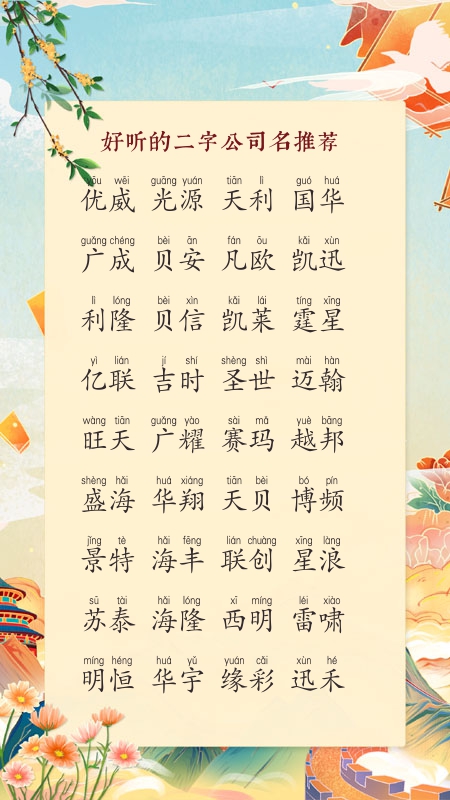 好听的二字公司名推荐
yōu wēi guāng yuán tiān lì guó huá
优威 光源 天利 国华
guǎng chéng bèi ān fán ōu kǎi xùn
广成 贝安 凡欧 凯迅
lì lóng bèi xìn kǎi lái tíng xīng
利隆 贝信 凯莱 霆星
yì lián jí shí shèng shì mài hàn
亿联 吉时 圣世 迈翰
wàng tiān guǎng yào sài mǎ yuè bāng
旺天 广耀 赛玛 越邦
shèng hǎi huá xiáng tiān bèi bó pín
盛海 华翔 天贝 博频
jǐng tè hǎi fēng lián chuàng xīng làng
景特 海丰 联创 星浪
sū tài hǎi lóng xī míng léi xiào
苏泰 海隆 西明 雷啸
míng héng huá yǔ yuán cǎi xùn hé
明恒 华宇 缘彩 迅禾